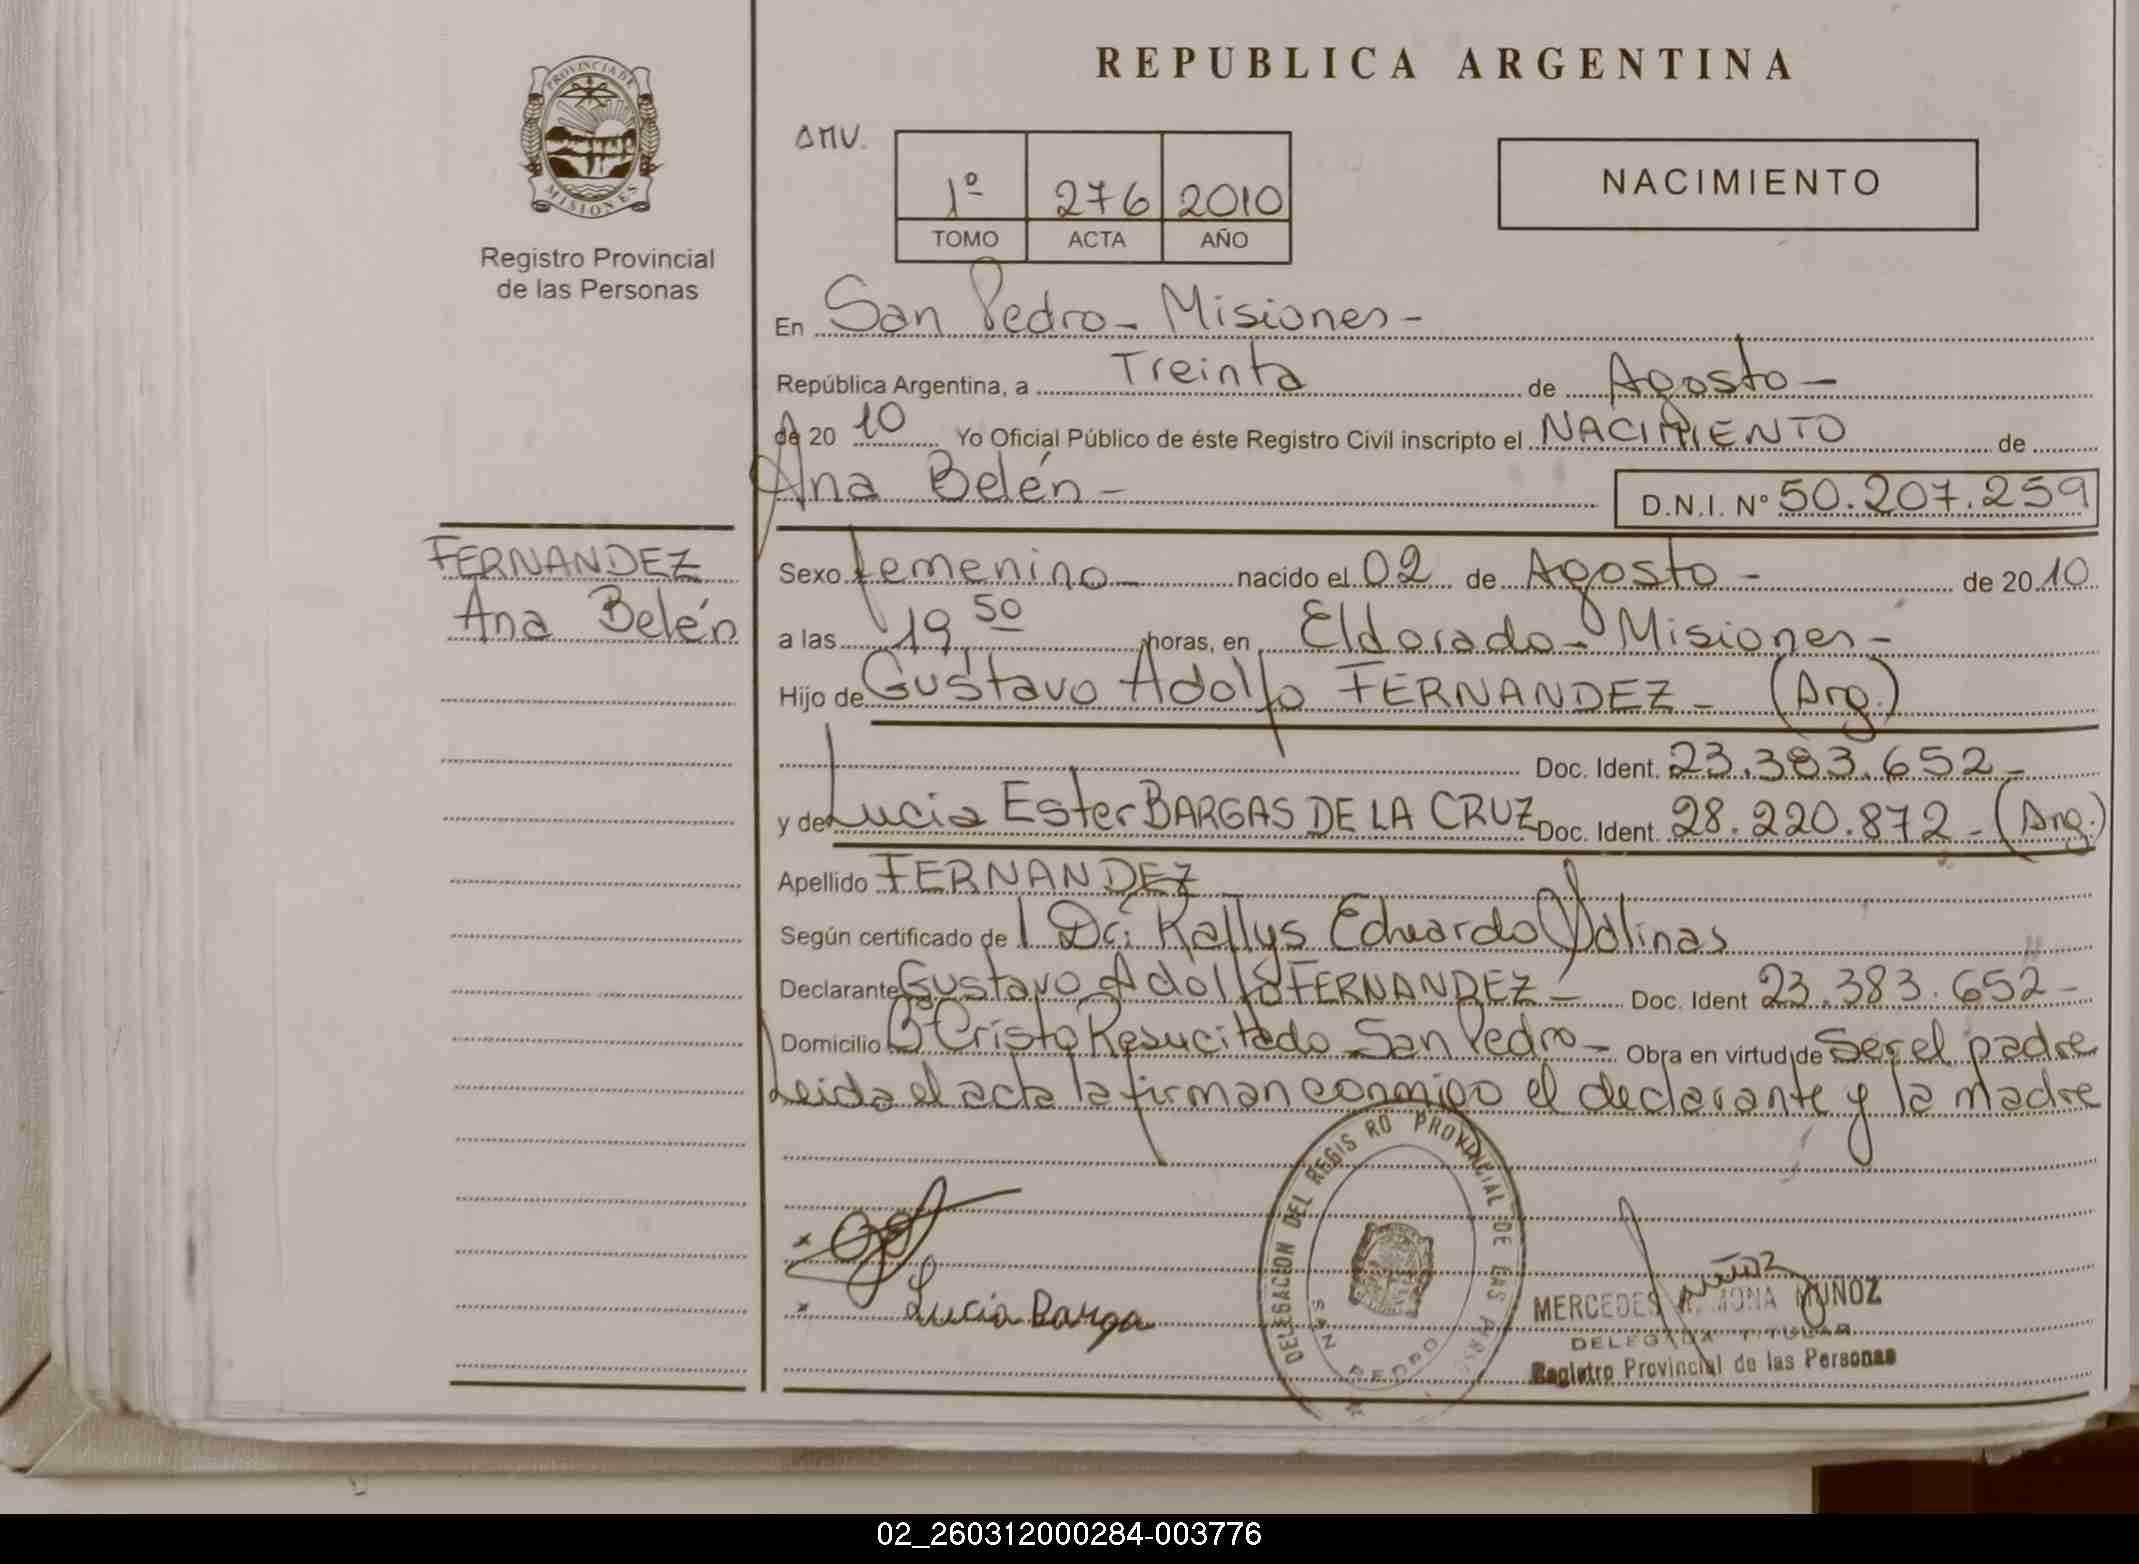 REPUBLICA ARGENTINA
PROVINCIA DE MISIONES
Registro Provincial
de las Personas
1º 276 2010
TOMO ACTA AÑO
NACIMIENTO
En San Pedro - Misiones -
República Argentina, a Treinta de Agosto -
de 20 10 Yo Oficial Público de éste Registro Civil inscripto el NACIMIENTO de
Ana Belén - D.N.I. Nº 50.207.259
FERNANDEZ
Ana Belén
Sexo femenino - nacido el 02 de Agosto - de 20 10
a las 19 50 horas, en Eldorado - Misiones -
Hijo de Gustavo Adolfo FERNANDEZ - (Arg.)
Doc. Ident. 23.383.652 -
y de Lucia Ester BARGAS DE LA CRUZ Doc. Ident. 28.220.872 - (Arg.)
Apellido FERNANDEZ
Según certificado de Eduardo
Declarante Gustavo Adolfo FERNANDEZ - Doc. Ident 23.383.652 -
Domicilio Bº Cristo Resucitado San Pedro - Obra en virtud de Ser el padre
Leida el acta la firman conmigo el declarante y la madre
DELEGACION DEL REGIS RO PROVINCIAL DE LAS
SAN PEDRO
Lucia Barga
Muñoz
MERCEDES MUÑOZ
DELEGADA TITULAR
Registro Provincial de las Personas
02_260312000284-003776